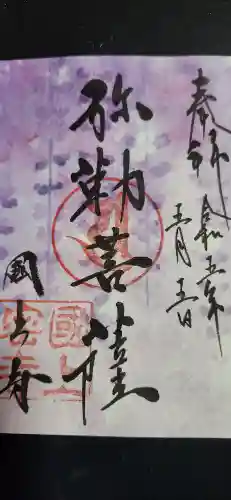 奉拝 令和五年
五月五日
弥勒菩薩
國上寺